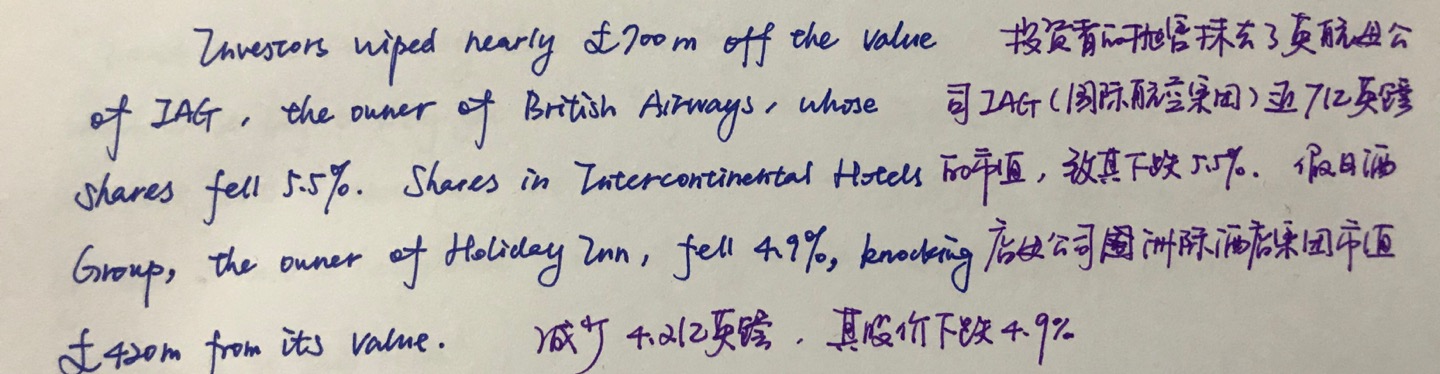 Investors wiped nearly £700m off the value
of IAG, the owner of British Airways, whose
shares fell 5.5%. Shares in Intercontinental Hotels
Group, the owner of Holiday Inn, fell 4.9%, knocking
£420m from its value.
投资者的抛售抹去了英航母公
司IAG(国际航空集团)近7亿英镑
的市值,致其下跌5.5%. 假日酒
店母公司洲际酒店集团市值
减少4.2亿英镑,其股价下跌4.9%